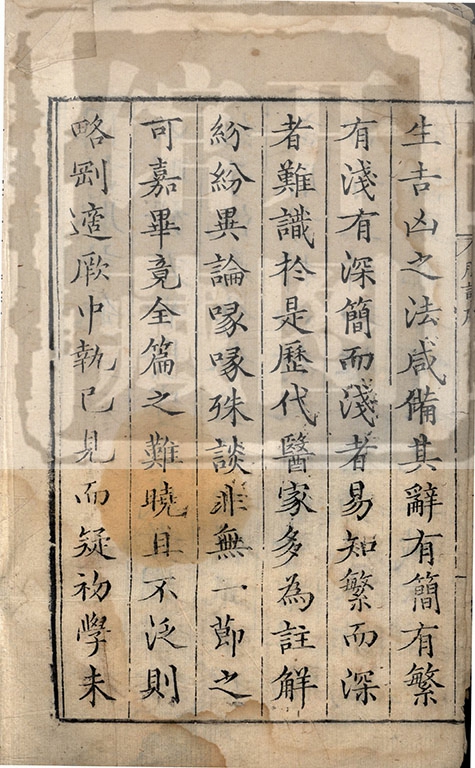 生吉凶之法咸備其辭有簡有繁
有淺有深簡而淺者易知繁而深
者難識於是歷代醫家多為註解
紛紛異論喙喙殊談非無一節之
可嘉畢竟全篇之難曉且不泛則
略剛適厥中執已見而疑初學未